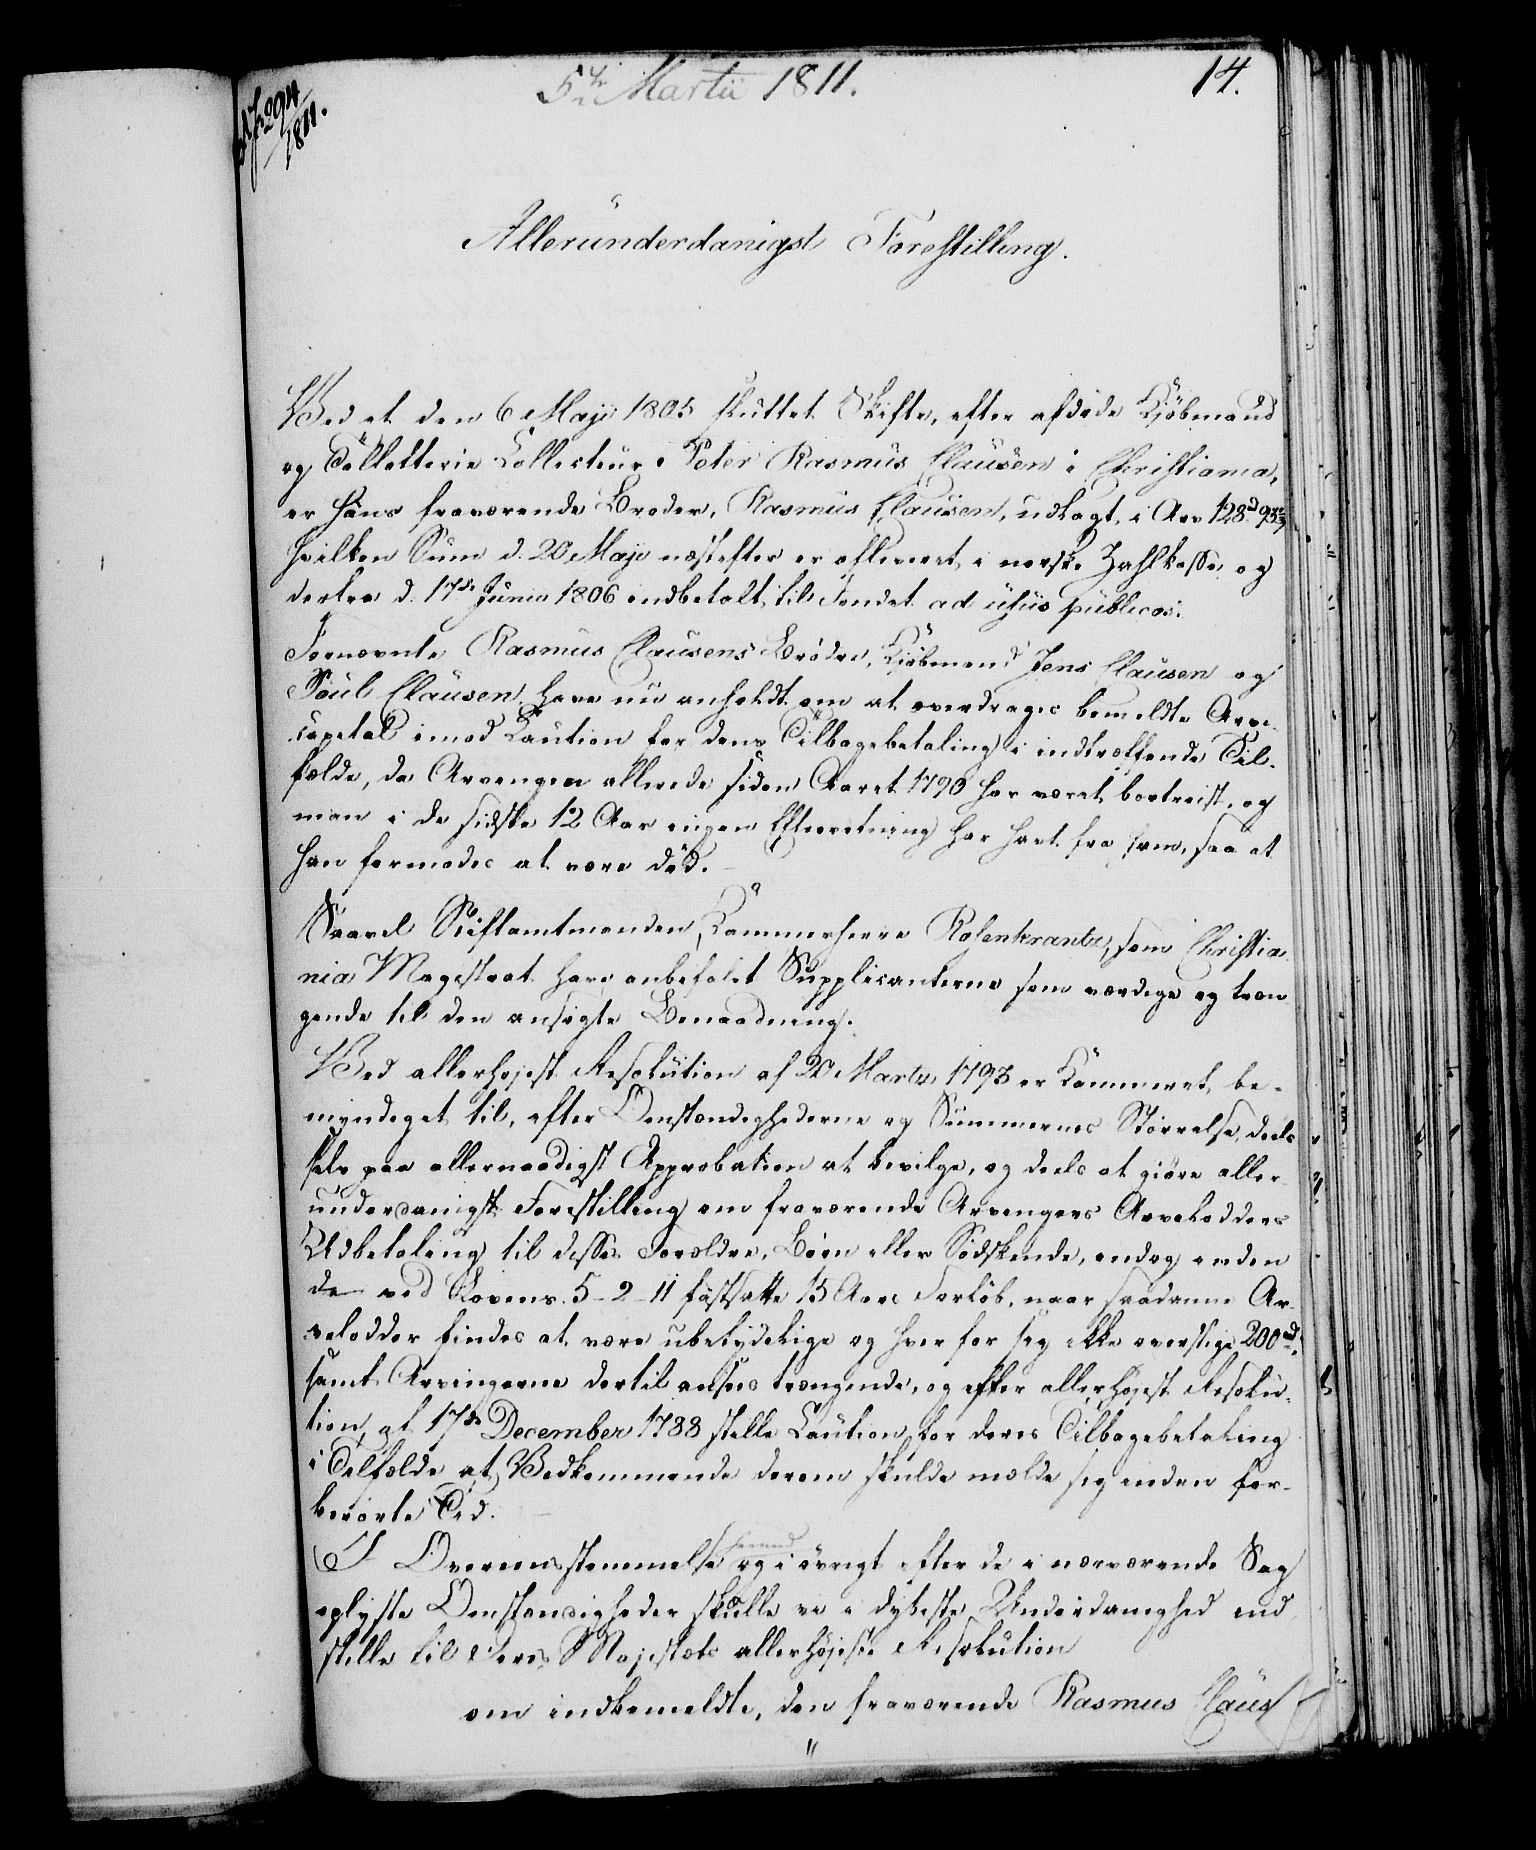 5te Martii 1811.
14.
294
1811.
Alleründerdanigst Forestilling.
Ved et den 6 Maji 1805 sluttet Skifte, efter afdøde Kjøbmand
og Tallotterie Collecteur Peter Rasmus Claüsen i Christiania,
er hans fraværende Broder, Rasmüs Claüsen, udlagt i Arv 128rd 95s,
hvilken Sum d. 20 Maji næstefter er afleveret i norske Zahlkasse og
derfra d. 17de Junii 1806 indbetalt til Fondet ad usüs publicos.
Fornævnte Rasmus Claüsens Brødre, Kjøbmænd Jens Claüsen og
Poül Claüsen, have nu anholdt om at overdrages bemeldte Arve-
capital imod Kaution for dens Tilbagebetaling i indtræffende Til-
fælde, da Arvingen allerede siden Aaret 1790 har været bortreist, og
man i de sidste 12 Aar ingen Efterretning har havt fra ham, saa at
han formodes at være død.
Saavel Stiftamtmanden, Kammerherre Rosenkrantz, som Christia-
nia Magistrat have anbefalet Supplicanterne som værdige og træn-
gende til den ansøgte Benaadning.
Ved allerhøjest Resolution af 20 Martii 1793 er Kammeret be-
myndiget til, efter Omstændighederne og Summernes Størrelse, deels
selv paa allernaadigst Approbation at bevilge, og deels at giøre aller-
underdanigst Forestilling om fraværende Arvingers Arvelodders
Udbetaling til disses Forældre, Børn eller Sødskende, endog inden
de ved Lovens 5-2-11 fastsatte 15 Aars Forløb, naar saadanne Ar-
velodder findes at være ubetydelige og hver for sig ikke overstige 200rd,
samt Arvingerne dertil ansees trængende, og efter allerhøjest Resolu-
tion af 17de December 1788 stille Caution for deres Tilbagebetaling
i Tilfælde at Vedkommende derom skulde melde sig inden for-
berørte Tid.
I Overeensstemmelse herved og i øvrigt efter de i nærværende Sag
oplyste Omstændigheder skulle vi i dybeste Underdanighed ind-
stille til Deres Majestæts allerhøjeste Resolution
om indbemeldte, den fraværende Rasmus Claüs